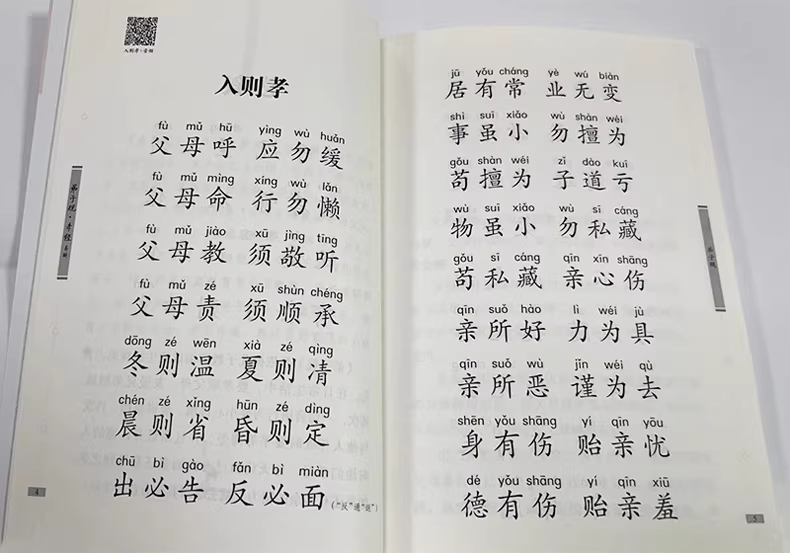 入则孝·音频
入则孝
fù mǔ hū yìng wù huǎn
父母呼 应勿缓
fù mǔ mìng xíng wù lǎn
父母命 行勿懒
fù mǔ jiào xū jìng tīng
父母教 须敬听
fù mǔ zé xū shùn chéng
父母责 须顺承
dōng zé wēn xià zé qìng
冬则温 夏则凊
chén zé xǐng hūn zé dìng
晨则省 昏则定
chū bì gào fǎn bì miàn
出必告 反必面
("反"通"返")
弟子规·孝经
4
jū yǒu cháng yè wú biàn
居有常 业无变
shì suī xiǎo wù shàn wéi
事虽小 勿擅为
gǒu shàn wéi zǐ dào kuī
苟擅为 子道亏
wù suī xiǎo wù sī cáng
物虽小 勿私藏
gǒu sī cáng qīn xīn shāng
苟私藏 亲心伤
qīn suǒ hào lì wèi jù
亲所好 力为具
qīn suǒ wù jǐn wèi qù
亲所恶 谨为去
shēn yǒu shāng yí qīn yōu
身有伤 贻亲忧
dé yǒu shāng yí qīn xiū
德有伤 贻亲羞
弟子规
5